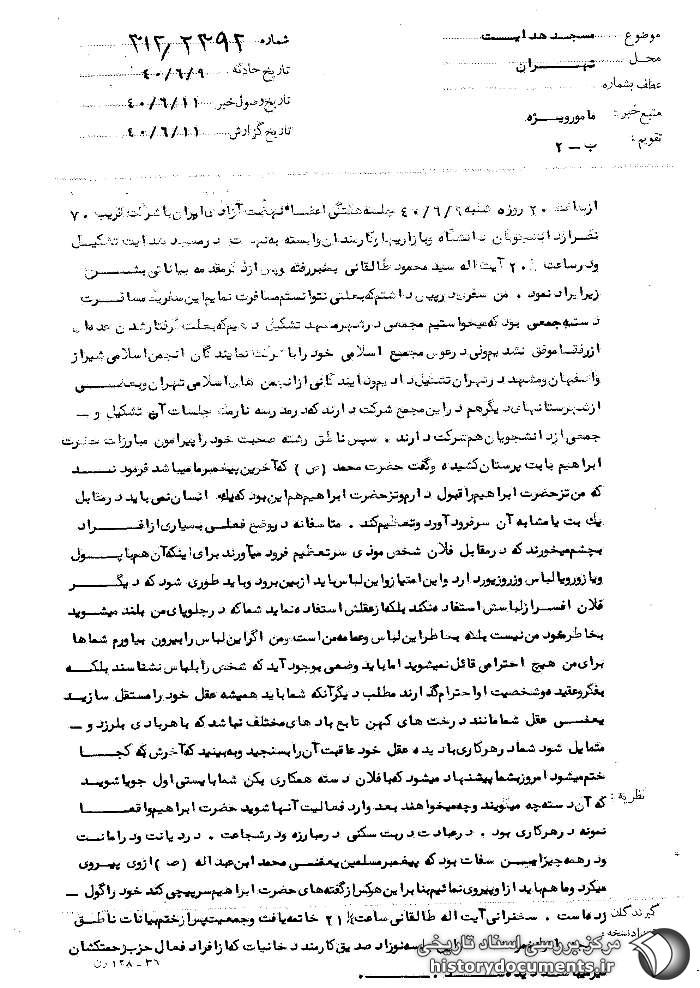 موضوع مسجد هدایت
محل تهران
عطف بشماره
منبع خبر : مامور ویژه
تقویم : ب - ۲
شماره ۳۱۲/۲۳۹۲
تاریخ حادثه ۴۰/۶/۹
تاریخ وصول خبر ۴۰/۶/۱۱
تاریخ گزارش ۴۰/۶/۱۱
از ساعت ۲۰ روز ۵ شنبه ۴۰/۶/۹ جلسه هفتگی اعضاء نهضت آزادی ایران با شرکت قریب ۷۰
نفر از دانشجویان دانشگاه و بازاریها و کارمندان وابسته به نهضت در مسجد هدایت تشکیل
و در ساعت ۲۰ آیت اله سید محمود طالقانی بمنبر رفته و پس از ذکر مقدمه بیاناتی بشـــرح
زیر ایراد نمود . من سفری در پیش داشتم که بعلتی نتوانستم مسافرت نمایم این سفر یک مسافرت
دسته جمعی بود که میخواستیم مجمعی در شهر مشهد تشکیل دهیم که بعلت گرفتار شدن عده ای
از رفقا موفق نشدیم ولی در عوض مجمع اسلامی خود را با شرکت نمایندگان انجمن اسلامی شیراز
و اصفهان و مشهد در تهران تشکیل دادیم و نمایندگانی از انجمن های اسلامی تهران و بعضـــی
از شهرستانهای دیگر هم در این مجمع شرکت دارند که در مدرسه نارمک جلسات آن تشکیل و -
جمعی از دانشجویان هم شرکت دارند . سپس ناطق رشته صحبت خود را پیرامون مبارزات حضرت
ابراهیم با بت پرستان کشیده و گفت حضرت محمد (ص) که آخرین پیغمبر ما میباشد فرمودنـــد
که من تز حضرت ابراهیم را قبول دارم و تز حضرت ابراهیم هم این بود که یک انسان نمی باید در مقابل
یك بت یا مشابه آن سر فرود آورد و تعظیم کند . متاسفانه در وضع فعلی بسیاری از افـــراد
بچشم میخورند که در مقابل فلان شخص موذی سر تعظیم فرود میآورند برای اینکه آن هم یا پـــول
و یا زور و یا لباس و زر و زیور دارد و این امتیاز و این لباس باید از بین برود و باید طوری شود که دیگـــر
فلان افسر از لباسش استفاده نکند بلکه از عقلش استفاده نماید شما که در جلو پای من بلند میشوید
بخاطر خود من نیست بلکه بخاطر این لباس و عمامه من است و من اگر این لباس را بیرون بیاورم شماها
برای من هیچ احترامی قائل نمیشوید اما باید وضعی بوجود آید که شخص را بلباس نشناسند بلکـــه
بفکر و عقیده و شخصیت او احترام گذارند مطلب دیگر آنکه شما باید همیشه عقل خود را مستقل سازیـــد
یعنـــی عقل شما مانند درخت های کهن تابع باد های مختلف نباشد که با هر بادی بلرزد و -
متمایل شود شما در هر کاری با دیده عقل خود عاقبت آن را بسنجید و به بینید که آخرش به کجـــا
ختم میشود امروز بشما پیشنهاد میشود که با فلان دسته همکاری بکن شما بایستی اول جویا شویـد
نظریه :
که آن دسته چه میگویند و چه میخواهند بعد وارد فعالیت آنها شوید حضرت ابراهیم واقعـــا
نمونه در هر کاری بود . در عبادت در بت شکنی در مبارزه و در شجاعت . در دیانت و در امانت
و در همه چیز این صفات بود که پیغمبر مسلمین یعنی محمد ابن عبداله (ص) از وی پیروی
میکرد و ما هم باید از او پیروی نمائیم بنابراین هر کس از گفته های حضرت ابراهیم سرپیچی کند خود را گول -
گیرندگان
زده است . سخنرانی آیت اله طالقانی ساعت ۲۱ خاتمه یافت و جمعیت پس از ختم بیانات ناطق
نوزاد صدیق کارمند دخانیات که از افراد فعال حزب زحمتکشان
دیده
۳۶-۱۲۸ رن
مرکز بررسی اسناد تاریخی
historydocuments.ir